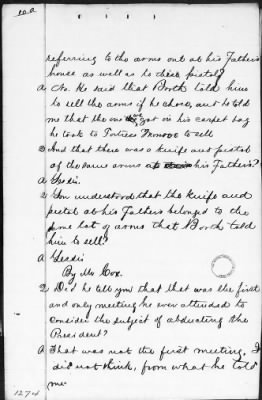 referring to the arms out at his Father's
house as well as to these pistols?
A No. He said that Booth told him
to sell the arms if he chose, and he told
me that the one he got in his carpet bag
he took to Fortress Monroe to sell
Q And that there was a knife and pistol
of the same arms at his Father's?
A Yes sir.
Q You understood that the knife and
pistol at his Fathers belonged to the
same lot of arms that Booth told
him to sell?
A Yes sir
By Mr Cox.
Q Did he tell you that that was the first
and only meeting he ever attended to
consider the subject of abducting the
President?
A That was not the first meeting. I
did not think, from what he told
me